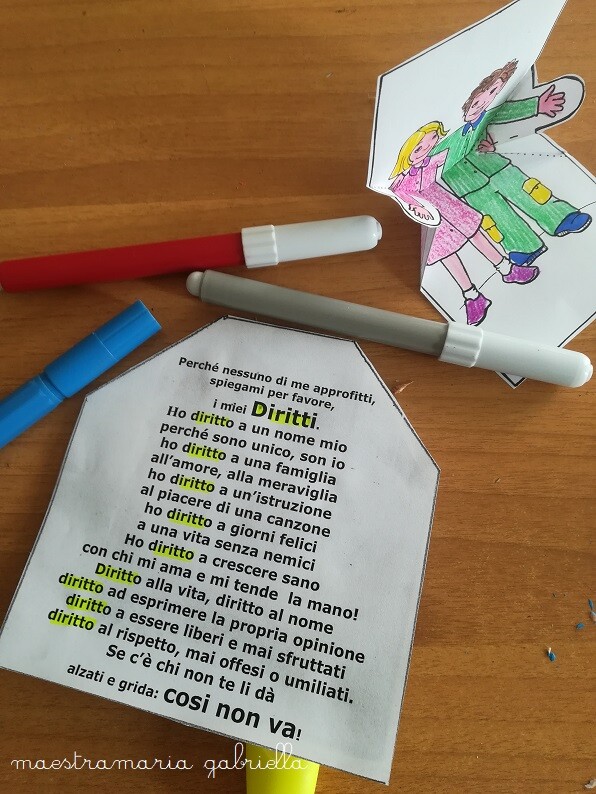 Perché nessuno di me approfitti,
spiegami per favore,
i miei Diritti.
Ho diritto a un nome mio
perché sono unico, son io
ho diritto a una famiglia
all'amore, alla meraviglia
ho diritto a un'istruzione
al piacere di una canzone
ho diritto a giorni felici
a una vita senza nemici
Ho diritto a crescere sano
con chi mi ama e mi tende la mano!
Diritto alla vita, diritto al nome
diritto ad esprimere la propria opinione
diritto a essere liberi e mai sfruttati
diritto al rispetto, mai offesi o umiliati.
Se c'è chi non te li dà
alzati e grida: cosi non va!
maestramaria gabriella